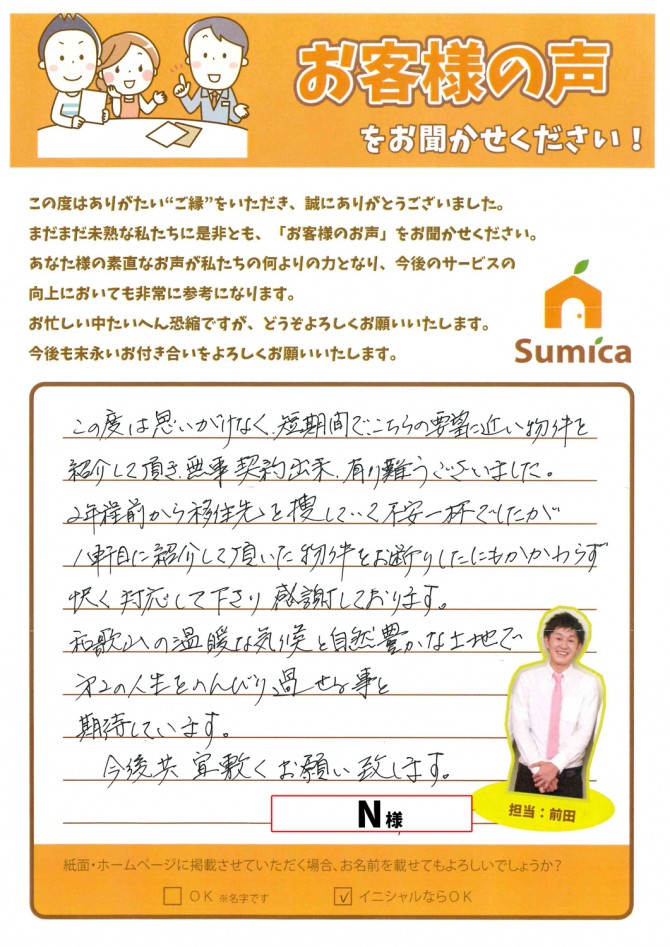 お客様の声
をお聞かせください！
この度はありがたい“ご縁”をいただき、誠にありがとうございました。
まだまだ未熟な私たちに是非とも、「お客様のお声」をお聞かせください。
あなた様の素直なお声が私たちの何よりの力となり、今後のサービスの
向上においても非常に参考になります。
お忙しい中たいへん恐縮ですが、どうぞよろしくお願いいたします。
今後も末永いお付き合いをよろしくお願いいたします。
Sumica
この度は思いがけなく、短期間でこちらの要望に近い物件を
紹介して頂き、無事契約出来、有り難うございました。
2年程前から移住先を捜していて不安一杯でしたが
1軒目に紹介して頂いた物件をお断りしたにもかかわらず
快く対応して下さり感謝しております。
和歌山の温暖な気候と自然豊かな土地で
第2の人生をのんびり過せる事を
期待しています。
今後共宜敷くお願い致します。
N様
担当：前田
紙面・ホームページに掲載させていただく場合、お名前を載せてもよろしいでしょうか？
OK ※名字です
イニシャルならOK